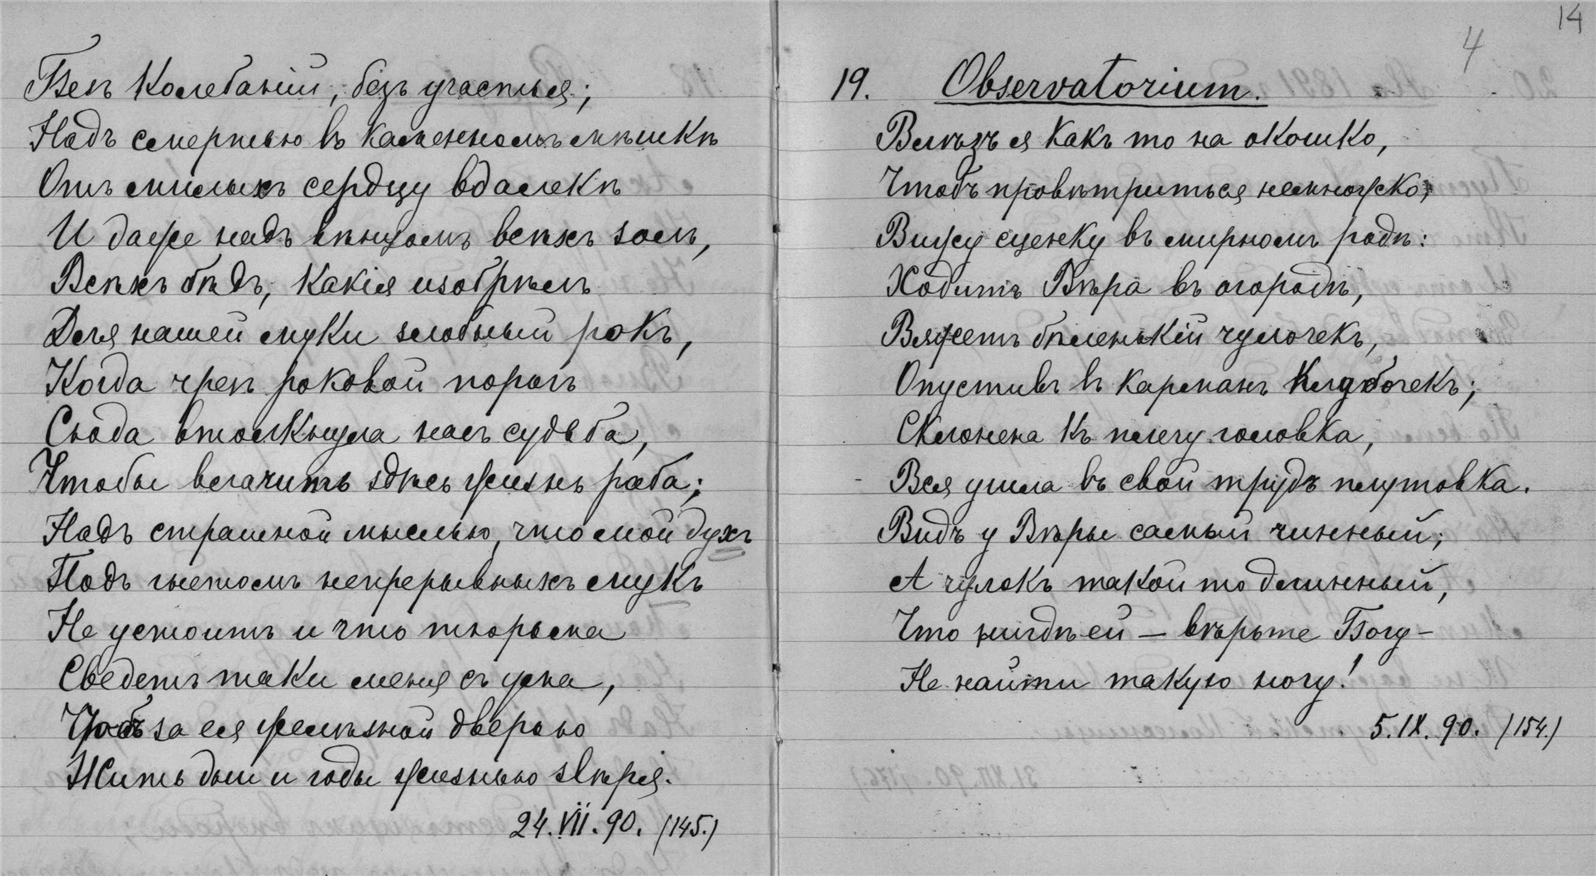 Безъ колебаній, безъ участья;
Надъ смертью въ каменномъ мѣшкѣ
Отъ милыхъ сердцу вдалекѣ
И даже надъ вѣнцомъ всѣхъ золъ,
Всѣхъ бѣдъ, какія изобрѣлъ
Для нашей муки злобный рокъ,
Когда чрезъ роковой порогъ
Сюда втолкнула насъ судьба,
Чтобы влачить здѣсь жизнь раба;
Надъ страшной мыслью, что мой духъ
Подъ гнетомъ непрерывныхъ мукъ
Не устоитъ и что тюрьма
Сведетъ таки меня съ ума,
Чтобъ за ея желѣзной дверью
Жить дни и годы жизнью звѣря.
24.VII.90. (145.)
14
4
19. Observatorium.
Влѣзъ я какъ то на окошко,
Чтобъ провѣтриться немножко;
Вижу сценку въ мирномъ родѣ:
Ходитъ Вѣра въ огородѣ,
Вяжетъ бѣленькій чулочекъ,
Опустивъ въ карманъ клубочекъ;
Склонена къ плечу головка,
Вся ушла въ свой трудъ плутовка.
Видъ у Вѣры самый чинный;
А чулокъ такой то длинный,
Что нигдѣ ей — вѣрьте Богу —
Не найти такую ногу!
5.IX.90. (154.)